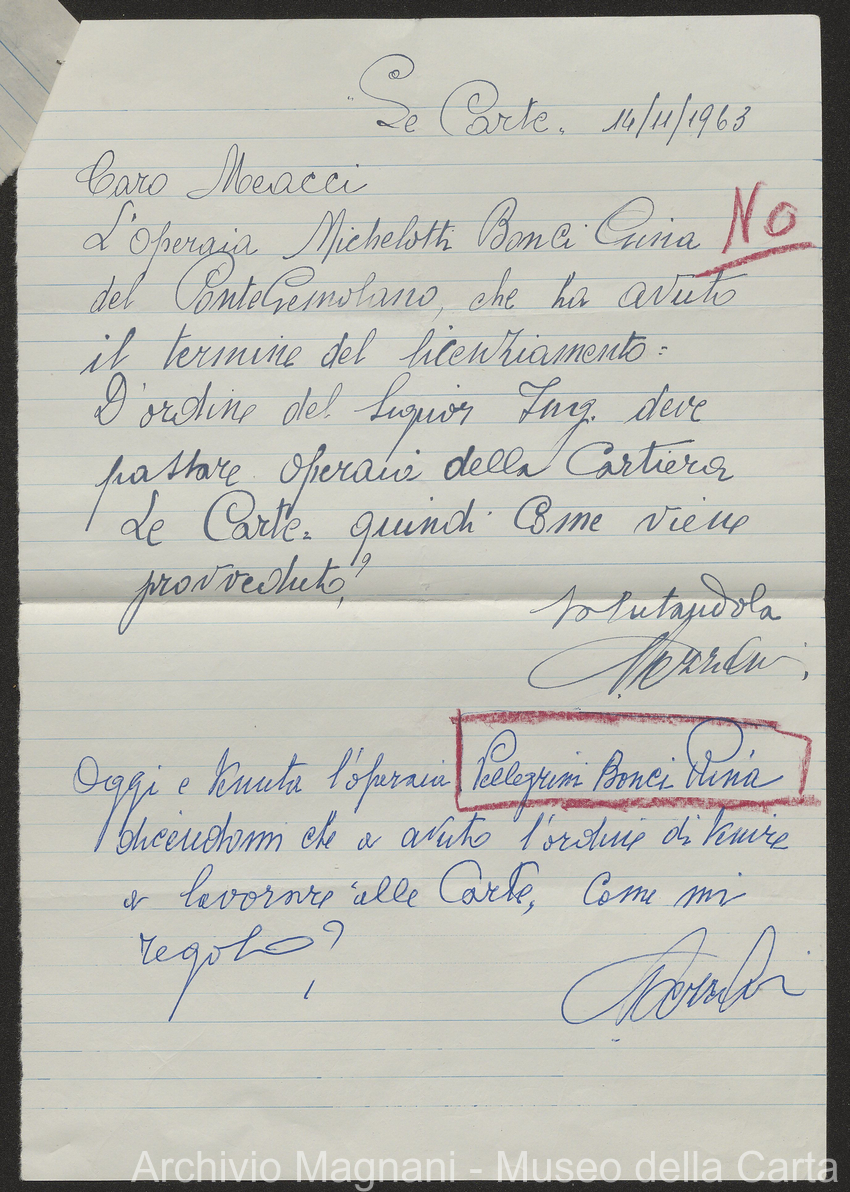 "Le Carte" 14/11/1963
Caro Meacci
L'operaia Michelotti Bonci Gina NO
del Ponte, che ha avuto
il termine del licenziamento =
D'ordine del Signor Ing. deve
passare operaia della Cartiera
Le Carte = quindi Come viene
provveduto?
Salutandola
Oggi e Venuta l'operaia Pellegrini Bonci Rina
dicendomi che a avuto l'ordine di Venire
a lavorare "alle Carte, Come mi
regolo?
Archivio Magnani - Museo della Carta